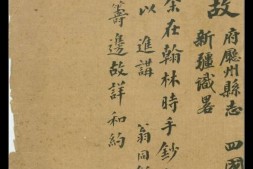 故
府廳州縣志 四國
新疆識畧
余在翰林時手鈔
以進講 翁同
籌邊故詳和約